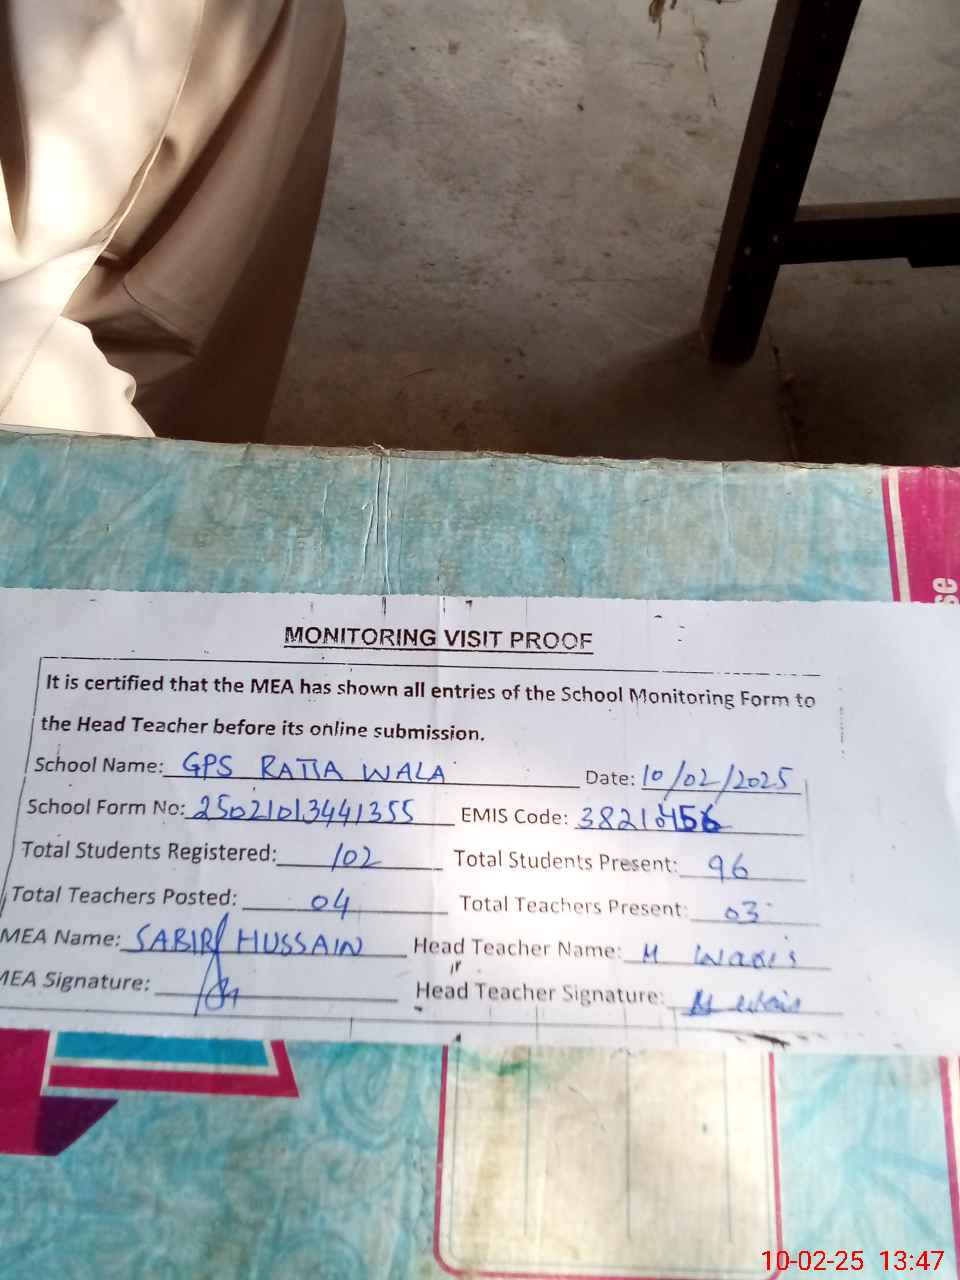 se
MONITORING VISIT PROOF
It is certified that the MEA has shown all entries of the School Monitoring Form to
the Head Teacher before its online submission.
School Name: GPS RATTA WALA Date: 10/02/2025
School Form No: 25021013441355 EMIS Code:
Total Students Registered: 102 Total Students Present: 96
Total Teachers Posted: 04 Total Teachers Present: 03
MEA Name: SABIR HUSSAIN Head Teacher Name: M Waris
MEA Signature: Head Teacher Signature: M Waris
10-02-25 13:47